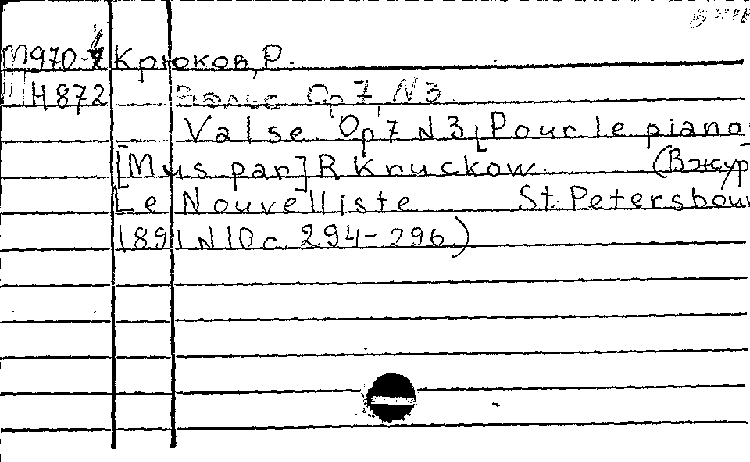 М970-4 Крюков, Р.
Н872 Вальс Op 7, N3.
Valse. Op 7 N3. [Pour le piano]
[Mus par] R Kruckow. (В журн
Le Nouvelliste St. Petersbour
1891 N10 с. 294-296)